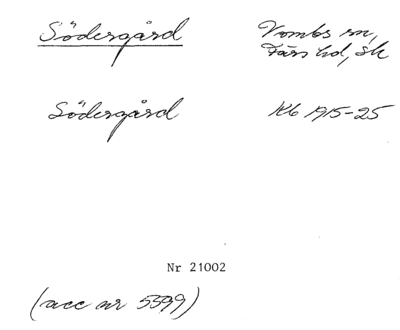 Södergård
Vombs sn,
Färs hd, Sk
Södergård
Kb 1915-25
Nr 21002
(acc nr 5599)